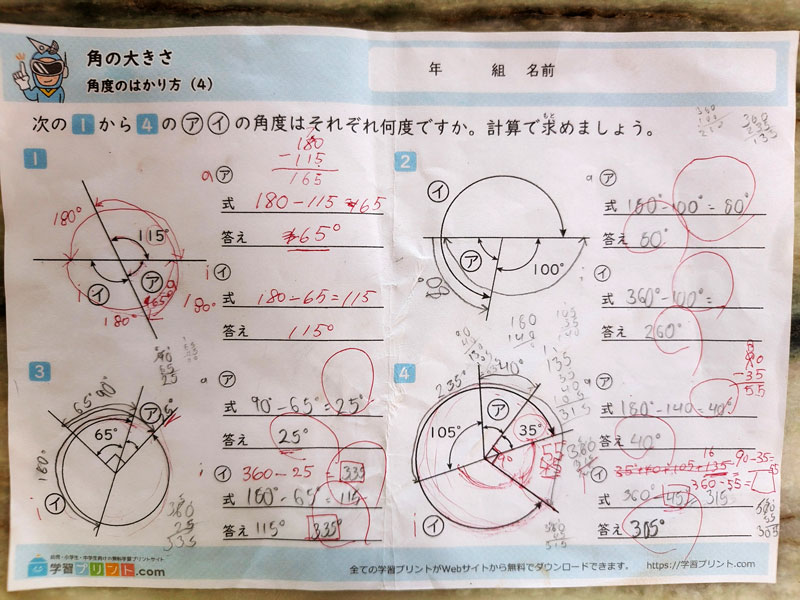 角の大きさ
角度のはかり方（4）
年 組 名前
次の 1 から 4 の ㋐ ㋑ の角度はそれぞれ何度ですか。計算で求めましょう。
もと
1
180
-115
165
180°
115°
㋐
㋑
i
180°
180°
a ㋐
式 180-115=65
答え 65°
i ㋑
式 180-65=115
答え 115°
2
㋑
㋐
100°
a ㋐
式 180°-100°=80°
答え 80°
i ㋑
式 360°-100°=
答え 260°
3
65° 90°
㋐
25°
65°
180°
i ㋑
a ㋐
式 90°-65°=25°
答え 25°
i ㋑
360-25=335
式 180°-65°=115
答え 115° 335°
4
235°
40°
㋐
105°
35°
i ㋑
180
140
135
315
a ㋐
式 180°-140=40°
答え 40°
90
-35
55
i ㋑
35°+40+105+135
90-35=
360-55=
式 360° 45 = 315
答え 305°
幼児・小学生・中学生向けの無料学習プリントサイト
学習プリント.com
全ての学習プリントがWebサイトから無料でダウンロードできます。 https://学習プリント.com